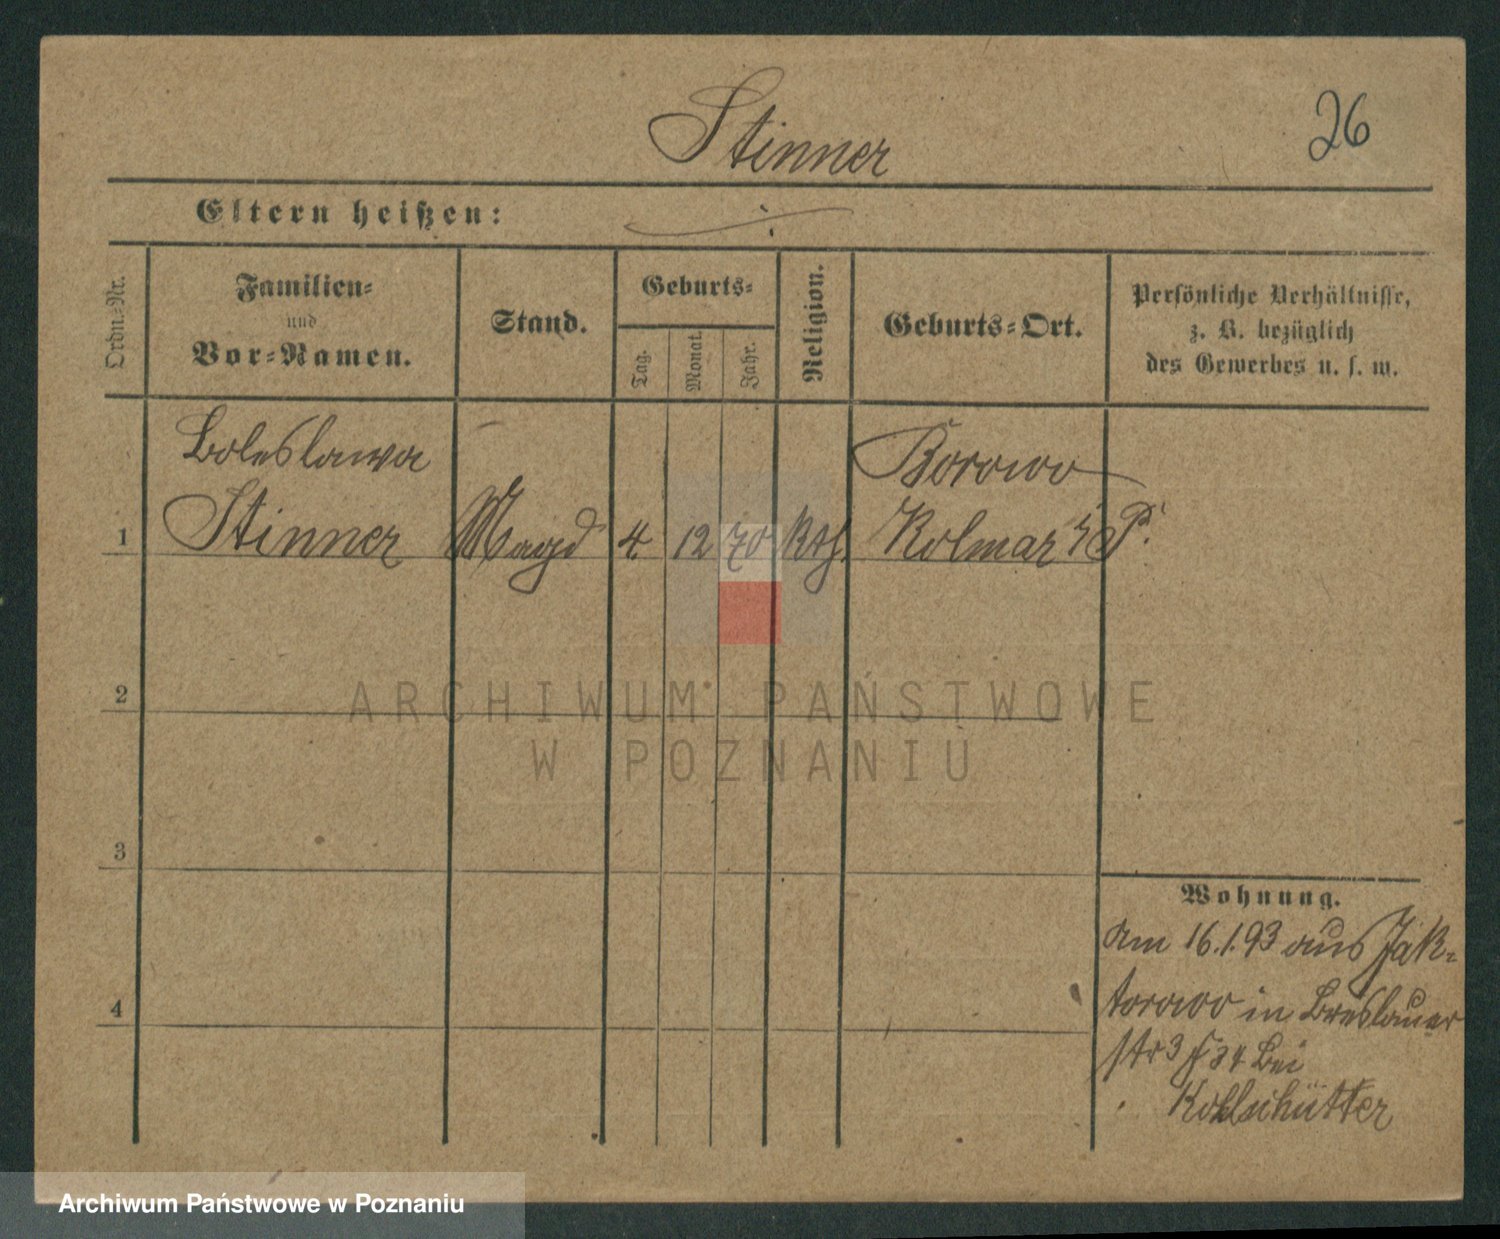 Stinner
26
Eltern heißen:
Ordn.-Nr.
Familien-
und
Vor-Namen.
Stand.
Geburts-
Tag.
Monat.
Jahr.
Religion.
Geburts-Ort.
Persönliche Verhältnisse,
z. B. bezüglich
des Gewerbes u. s. w.
Boleslawa
Borowo
1 Stinner Magd 4 12 70 Kth. Kolmar i/P.
2
ARCHIWUM PAŃSTWOWE
W POZNANIU
3
Wohnung.
am 16.1.93 aus Jak-
torowo in Breslauer
4
str 34 bei
Kohlschütter
Archiwum Państwowe w Poznaniu